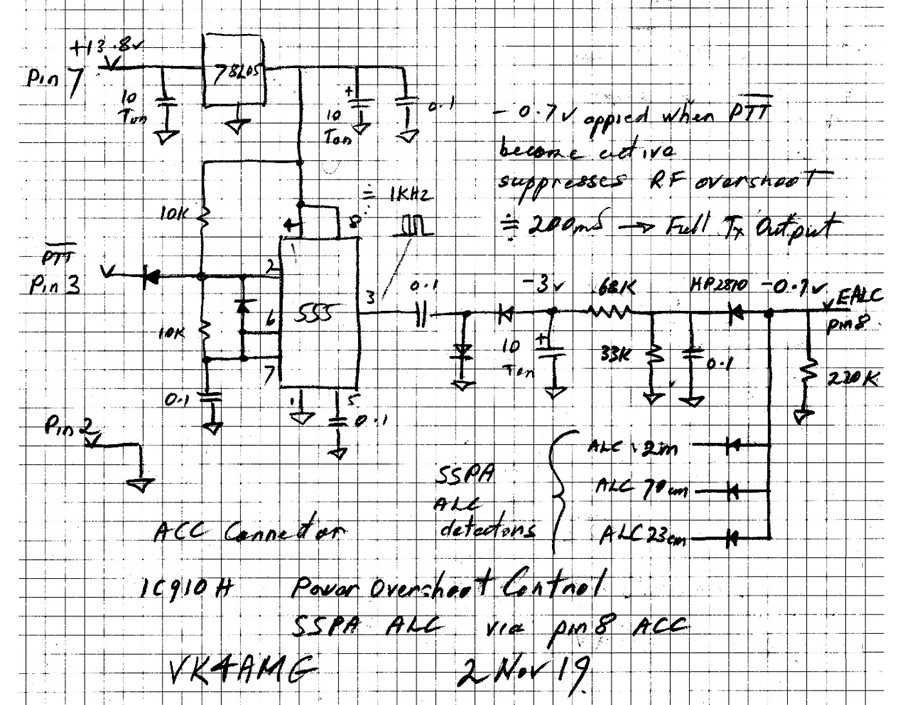 +13.8v
Pin 7
78L05
10 Tan
+
10 Tan
0.1
- 0.7v appied when PTT
become active
suppresses RF overshoot
≑ 200mS → Full Tx Output
≑ 1KHz
10K
4
8
PTT
Pin 3
2
3
6
7
555
1
5
10K
0.1
0.1
0.1
-3v
+
10 Tan
68K
33K
0.1
HP2810
-0.7v
EALC
pin 8.
220K
Pin 2
SSPA
ALC
detectors
ALC 2m
ALC 70cm
ALC 23cm
ACC Connector
IC910H Power Overshoot Control
SSPA ALC via pin 8 ACC
VK4AMG 2 Nov 19.